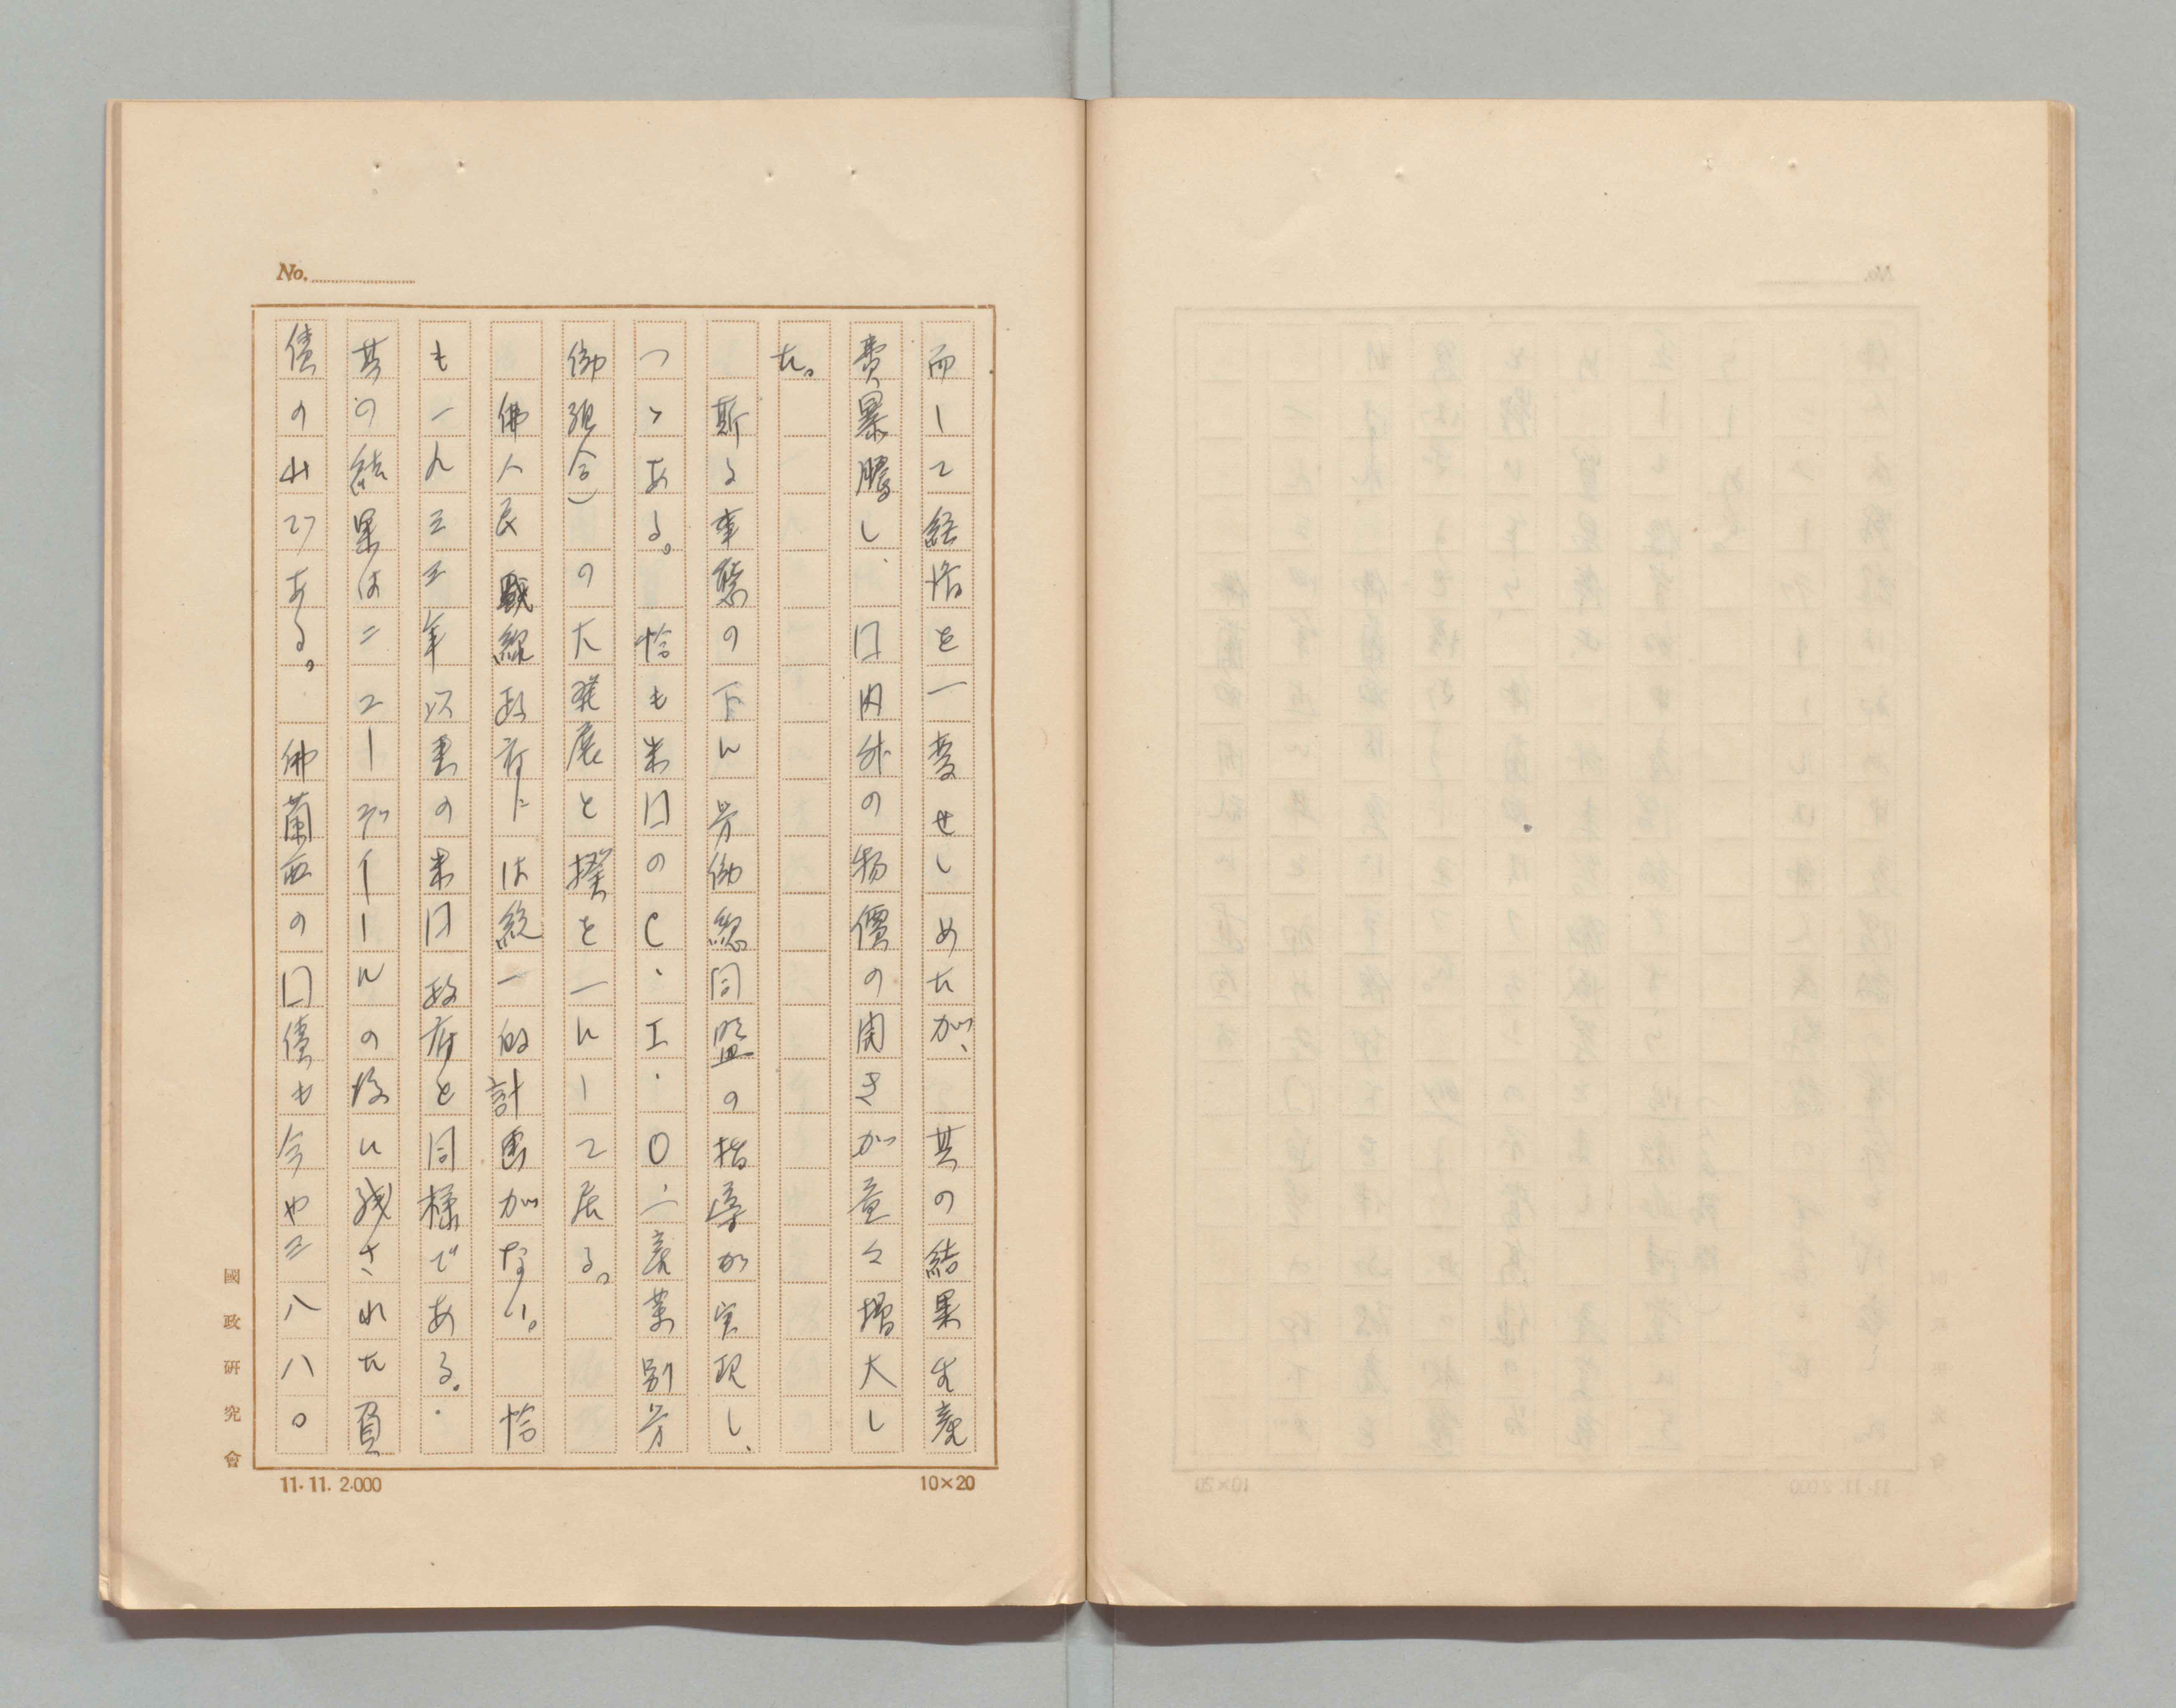 No.
而して経済を一変せしめたが、其の結果生産
費暴騰し、国内外の物價の開きが益々増大し
た。
斯る事態の下に労働総同盟の指導が実現し、
つゝある。恰も米国のC.I.O.(産業別労
働組合)の大発展と揆を一にして居る。
佛人民戦線政府には統一的計画がない。恰
も一九三三年以来の米国政府と同様である。
其の結果はニューディールの後に残された負
債のみである。佛蘭西の国債も今や三八八〇
國政研究會
11.11.2.000
10×20